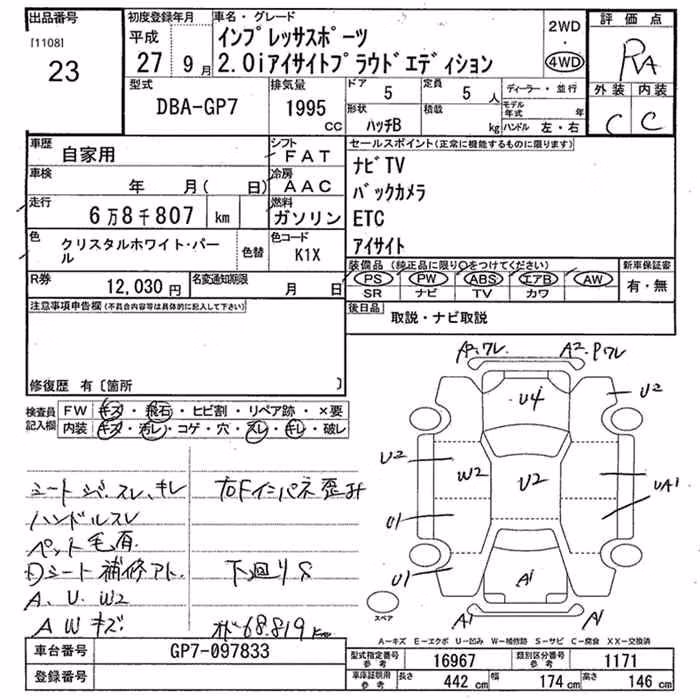 出品番号
[1108]
23
初度登録年月
平成
27 9月
車名・グレード
インプレッサスポーツ
2.0iアイサイトプラウドエディション
2WD
・
4WD
評価点
RA
外装 内装
C C
型式
DBA-GP7
排気量
1995
cc
ドア
5
定員
5 人
形状
ハッチB
積載
kg
ディーラー・並行
モデル年式 年
ハンドル 左・右
車歴
自家用
シフト
FAT
車検
年 月( 日)
冷房
AAC
走行
6万8千807 km
燃料
ガソリン
色
クリスタルホワイト・パール
色替
色コード
K1X
R券
12,030円
名変通知期限
月 日
セールスポイント(正常に機能するものに限ります)
ナビTV
バックカメラ
ETC
アイサイト
装備品(純正品に限り○をつけてください)
PS PW ABS エアB AW
SR ナビ TV カワ
新車保証書
有・無
後日品
取説・ナビ取説
注意事項申告欄(不具合内容等は具体的に記入して下さい)
修復歴 有〔箇所 〕
検査員
記入欄
FW キズ・飛石・ヒビ割・リペア跡・×要
内装 キズ・汚レ・コゲ・穴・スレ・キレ・破レ
シート シミ.スレ.キレ
ハンドルスレ
ペット毛有
シート補修アト.
A. U. W2
AWキズ
右Fインパネ歪み
下廻りS
68.819km
A2.ワレ.
A2.Pワレ
U4
U2
U2
W2
U2
UA1
U1
U1
A1
A1
A1
スペア
A-キズ E-エクボ U-凹み W-補修跡 S-サビ C-腐食 XX-交換済
車台番号
GP7-097833
登録番号
型式指定番号
参考
16967
類別区分番号
参考
1171
車庫証明用
参考
長さ
442 cm
幅
174 cm
高さ
146 cm